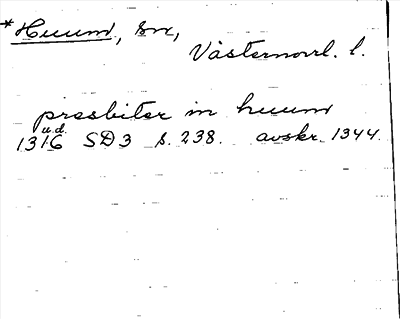 *Huum, sn,
Västernorrl. l.
presbiter in huum
u.d.
1316 SD3 s. 238. avskr. 1344.